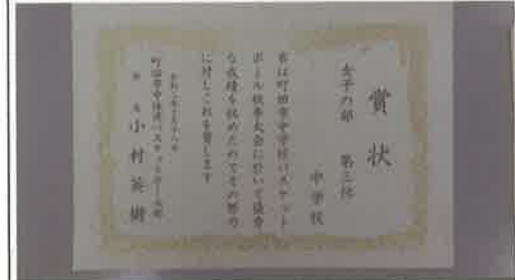 賞状
女子の部 第三位
中学校
右は町田市中学校バスケット
ボール秋季大会に於いて優秀
な成績を収めたのでその努力
に対しこれを賞します
町田市中体連バスケットボール部
小村英樹